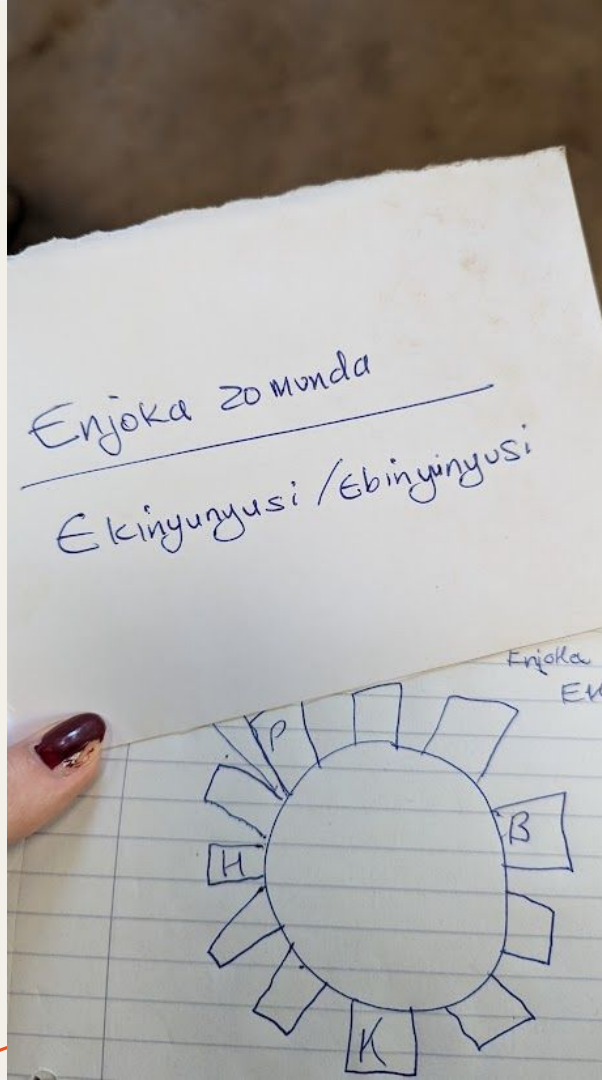 Enjoka zomunda
Ekinyunyusi / Ebinyinyusi
Enjoka
P
B
H
K